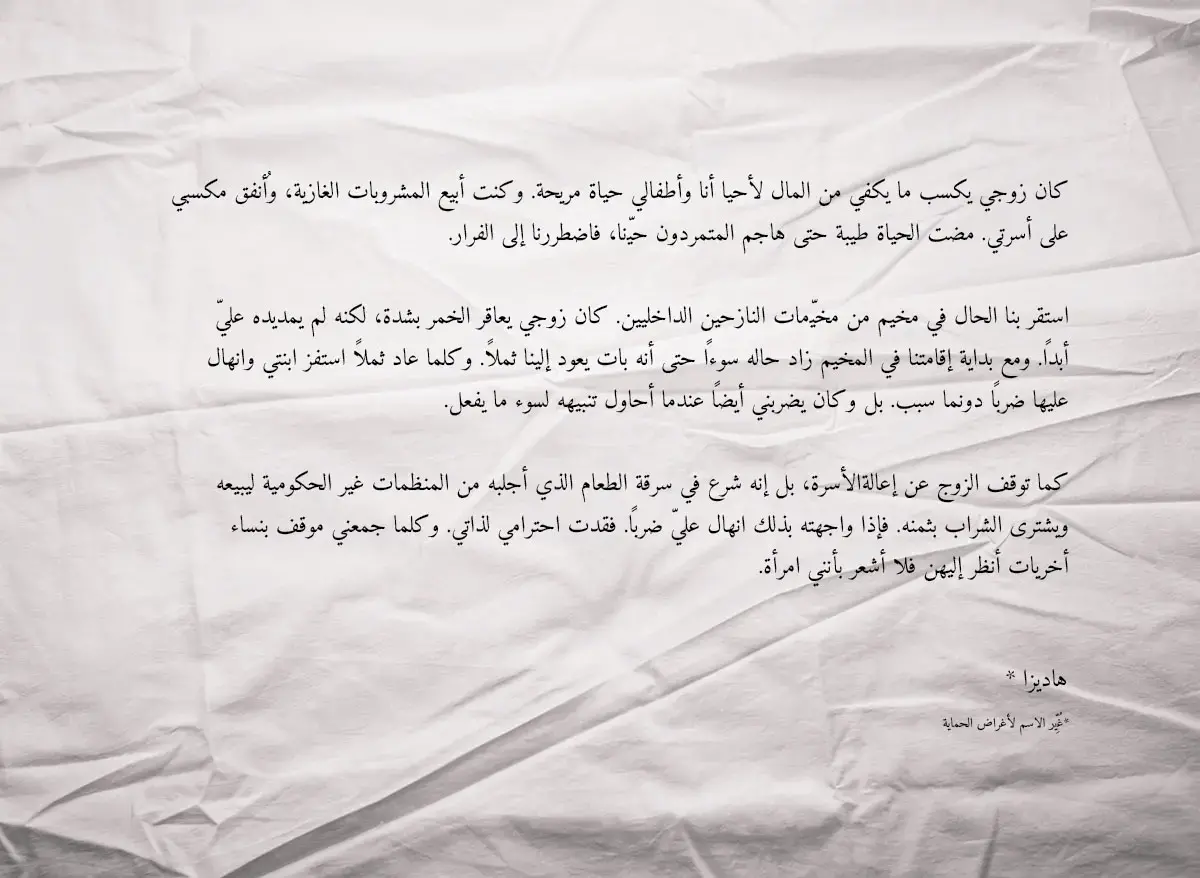 كان زوجي يكسب ما يكفي من المال لأحيا أنا وأطفالي حياة مريحة. وكنت أبيع المشروبات الغازية، وأُنفق مكسبي
على أسرتي. مضت الحياة طيبة حتى هاجم المتمردون حيّنا، فاضطررنا إلى الفرار.
استقر بنا الحال في مخيم من مخيّمات النازحين الداخليين. كان زوجي يعاقر الخمر بشدة، لكنه لم يمديده عليّ
أبدًا. ومع بداية إقامتنا في المخيم زاد حاله سوءاً حتى أنه بات يعود إلينا ثملاً. وكلما عاد ثملاً استفز ابنتي وانهال
عليها ضربًا دونما سبب. بل وكان يضربني أيضاً عندما أحاول تنبيهه لسوء ما يفعل.
كما توقف الزوج عن إعالةالأسرة، بل إنه شرع في سرقة الطعام الذي أجلبه من المنظمات غير الحكومية ليبيعه
ويشترى الشراب بثمنه. فإذا واجهته بذلك انهال عليّ ضربًا. فقدت احترامي لذاتي. وكلما جمعني موقف بنساء
أخريات أنظر إليهن فلا أشعر بأنني امرأة.
هاديزا *
*غُيِّر الاسم لأغراض الحماية